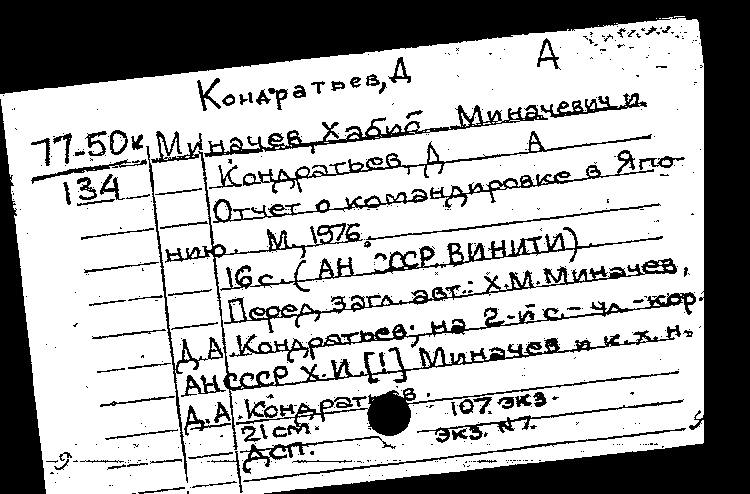 Кондратьев, Д А
77-50к Миначев, Хабиб Миначевич и
134 Кондратьев, Д А
Отчет о командировке в Япо-
нию. М., 1976.
16 с. (АН СССР. ВИНИТИ)
Перед загл. авт.: Х.М. Миначев,
Д.А. Кондратьев; на 2-й с. - чл.-кор.
АН СССР Х.И. [!] Миначев и к.х.н.
Д.А. Кондратьев.
21 см. 107 экз.
ДСП. экз. N 7.